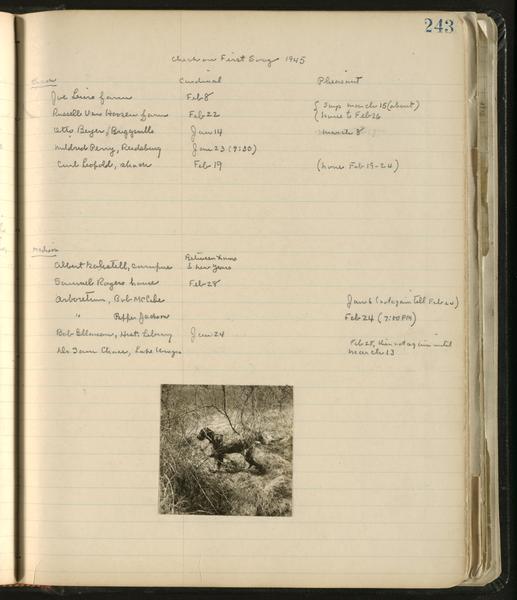 243
Check on First Song 1945
Shack Cardinal Pheasant
Joe Lewis farm Feb 8
Russell Van Hoosen farm Feb 22 { Says March 15 (about)
( none to Feb 26
Otto Beyer, Briggsville Jan 14 March 8
Mildred Perry, Reedsburg Jan 23 (7:30)
Carl Leopold, Shack Feb 19 (none Feb 19-24)
Madison
Albert campus Between Xmas
& New Years
Samuel Rogers house Feb 28
Arboretum, Bob McCabe Jan 6 (not again till Feb 20)
" Pepper Jackson Feb 24 (7:00 PM)
Bob Ellarson, Hist. Library Jan 24
Mrs Tom Chase, Lake Feb 28, then not again until
March 13